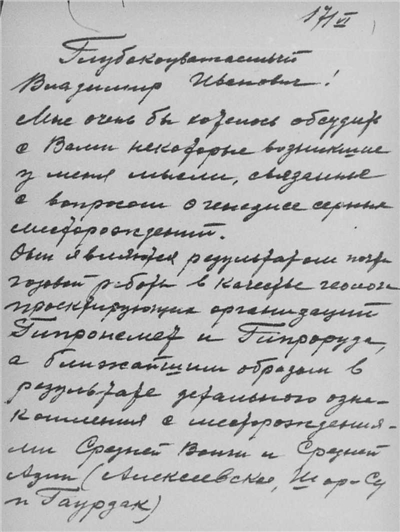 17/VI
Глубокоуважаемый
Владимир Иванович!
Мне очень бы хотелось обсудить
с Вами некоторые возникшие
у меня мысли, связанные
с вопросом о генезисе серных
месторождений.
Они являются результатом почти
годовой работы в качестве геолога
проектирующих организаций
Гипронемет и Гипроруда,
а ближайшим образом в
результате детального озна-
комления с месторождения-
ми Средней Волги и Средней
Азии (Алексеевское, Шор-Су
и Гаурдак)